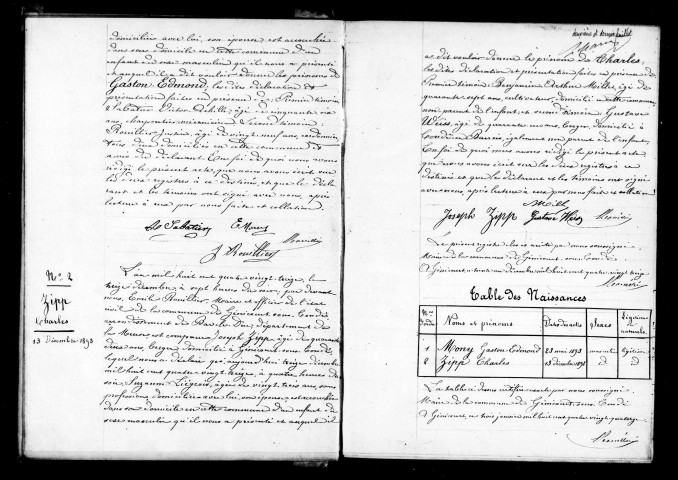 domiciliée avec lui, son épouse est accouchée
dans son domicile en cette commune d'un
enfant du sexe masculin qu'il nous a présenté
et auquel il a dit vouloir donner les prénoms de
Gaston Edmond, les dites déclaration et
présentation faites en présence de Premier témoin
Sabatier Victor âgé de cinquante
ans, Second témoin
Rouillier Justin, âgé de vingt neuf ans,
tous deux domiciliés en cette commune et
amis du déclarant. En foi de quoi nous avons
rédigé le présent acte que nous avons écrit sur
les deux registres à ce destinés, et que le décla-
rant et les témoins ont signé avec nous, après
lecture à eux par nous faite et collation.
Sabatier E Mory
J Rouillier
N° 2
Zipp
Charles
13 Décembre 1893
L'an mil huit cent quatre vingt treize, le
treize décembre, à sept heures du soir, par devant
nous, Emile Rouillier, Maire et officier de l'état
civil de la commune de Génicourt sous Condé,
arrondissement de Bar le Duc, département de
la Meuse est comparu Joseph Zipp, âgé de quarante
deux ans, berger, domicilié à Génicourt sous Condé,
lequel nous a déclaré que aujourd'hui treize décembre
mil huit cent quatre vingt treize, à quatre heures du
soir, Suzanne Liégeois, âgée de vingt trois ans, sans
profession, domiciliée avec lui, son épouse, est accouchée
dans son domicile en cette commune d'un enfant du
sexe masculin qu'il nous a présenté et auquel il
a dit vouloir donner le prénom de Charles,
les dites déclaration et présentation faites en présence de
Premier témoin Benjamin Arthur Mille, âgé de
quarante sept ans, cultivateur, domicilié en cette commune,
non parent de l'enfant, et second témoin Gustave
Weiss, âgé de quarante ans, berger, domicilié à
Condé, également non parent de l'enfant.
En foi de quoi nous avons rédigé le présent acte
que nous avons écrit sur les deux registres à ce
destinés et que le déclarant et les témoins ont signé
avec nous, après lecture à eux par nous faite et collation.
Joseph Zipp Gustave Weiss
Le présent registre clos et arrêté par nous soussigné
Maire de la commune de Génicourt sous Condé
A Génicourt, le trente un décembre mil huit cent quatre vingt treize
Table des Naissances
Noms et prénoms Sexes
1 Mory Gaston Edmond 23 mai 1893 masculin légitime
2 Zipp Charles 13 décembre 1893 d° d°
La table ci dessus certifiée exacte par nous soussigné
Maire de la commune de Génicourt sous Condé
A Génicourt, le trois janvier mil huit cent quatre vingt quatorze